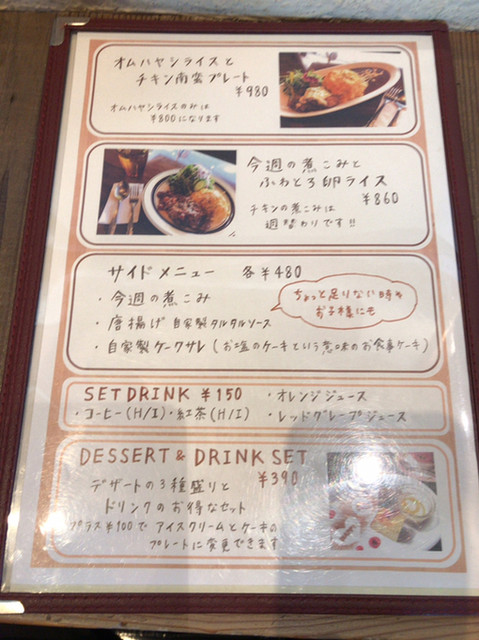 オムハヤシライスと
チキン南蛮プレート
¥980
オムハヤシライスのみは
¥800になります
今週の煮こみと
ふわとろ卵ライス
¥860
チキンの煮こみは
週替わりです!!
サイドメニュー 各¥480
・今週の煮こみ
・唐揚げ 自家製タルタルソース
・自家製ケークサレ(お塩のケーキという意味のお食事ケーキ)
ちょっと足りない時や
お子様にも
SET DRINK ¥150
・オレンジジュース
・コーヒー(H/I)・紅茶(H/I)
・レッドグレープジュース
DESSERT & DRINK SET
¥390
デザートの3種盛りと
ドリンクのお得なセット
プラス¥100でアイスクリームとケーキの
プレートに変更できます